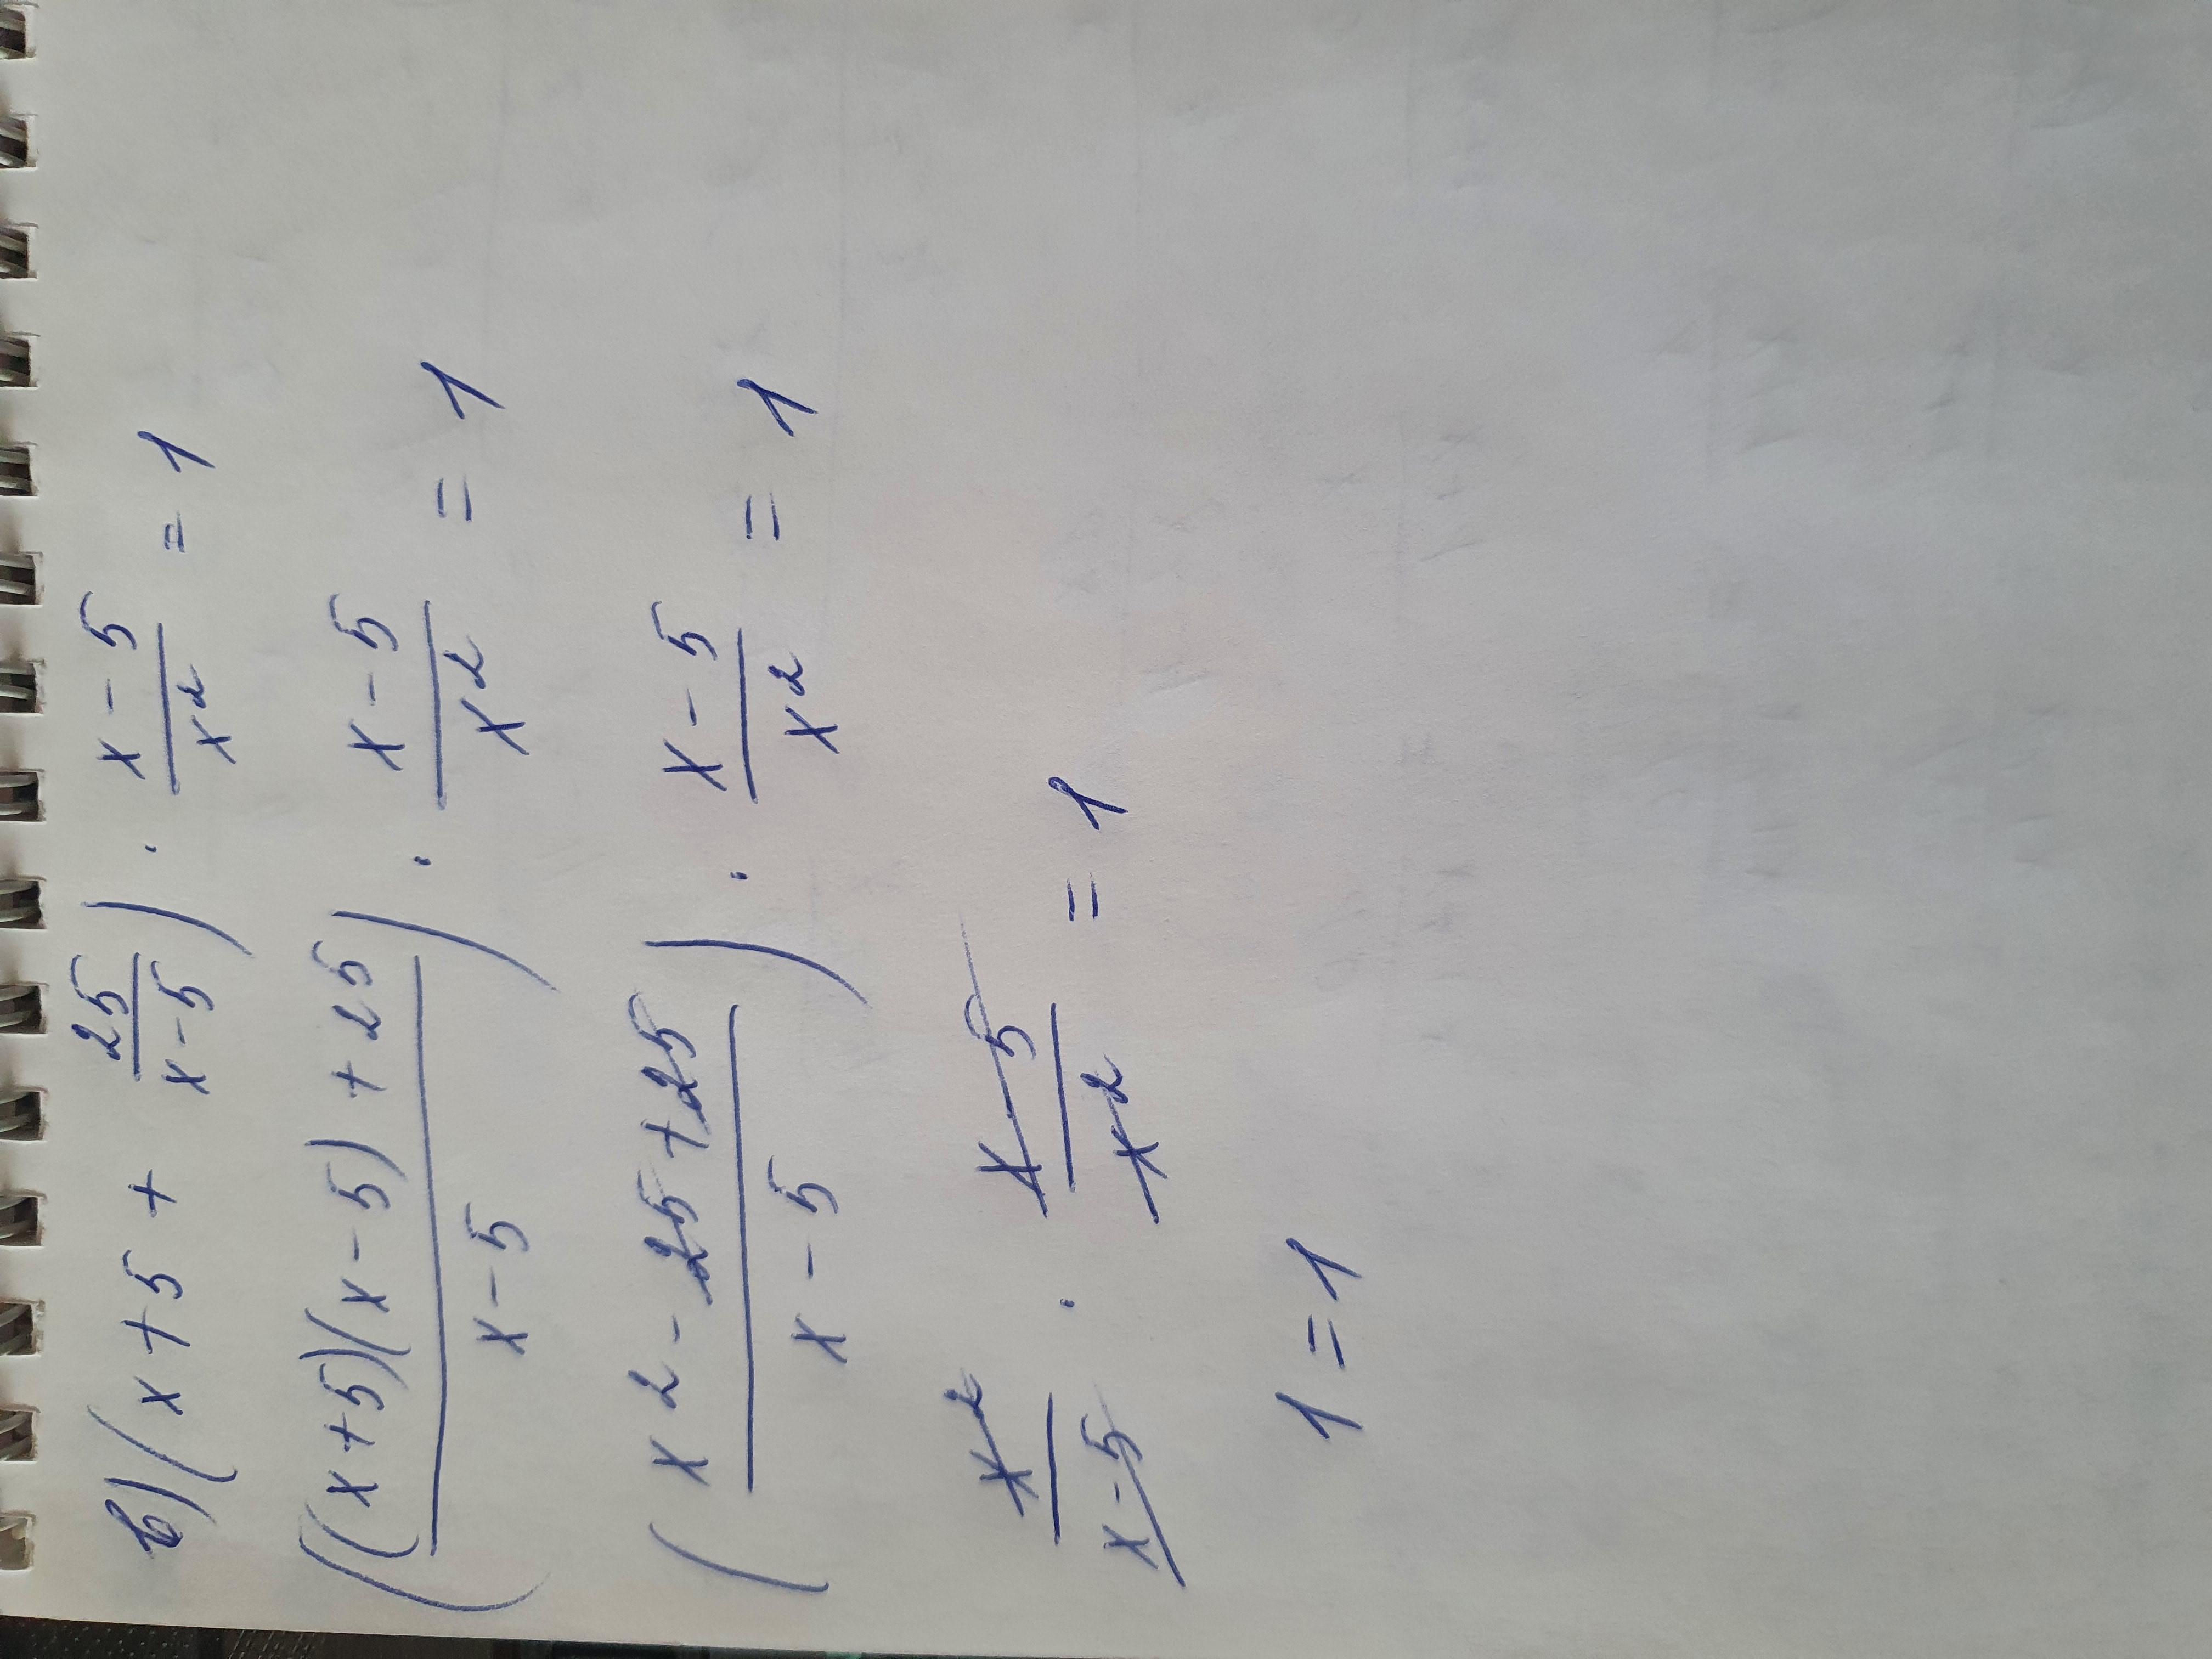 в) (x + 5 + 25/(x-5)) · (x-5)/x² = 1
(((x+5)(x-5)+25)/(x-5)) · (x-5)/x² = 1
((x²-25+25)/(x-5)) · (x-5)/x² = 1
x²/(x-5) · (x-5)/x² = 1
1 = 1